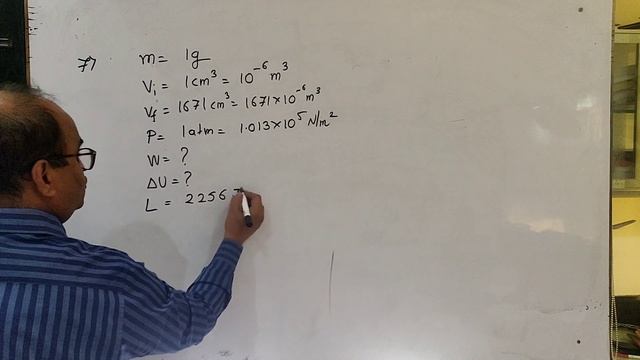 77 m = 1g
Vi = 1 cm³ = 10⁻⁶ m³
Vf = 1671 cm³ = 1671 × 10⁻⁶ m³
P = 1 atm = 1.013 × 10⁵ N/m²
W = ?
ΔU = ?
L = 2256